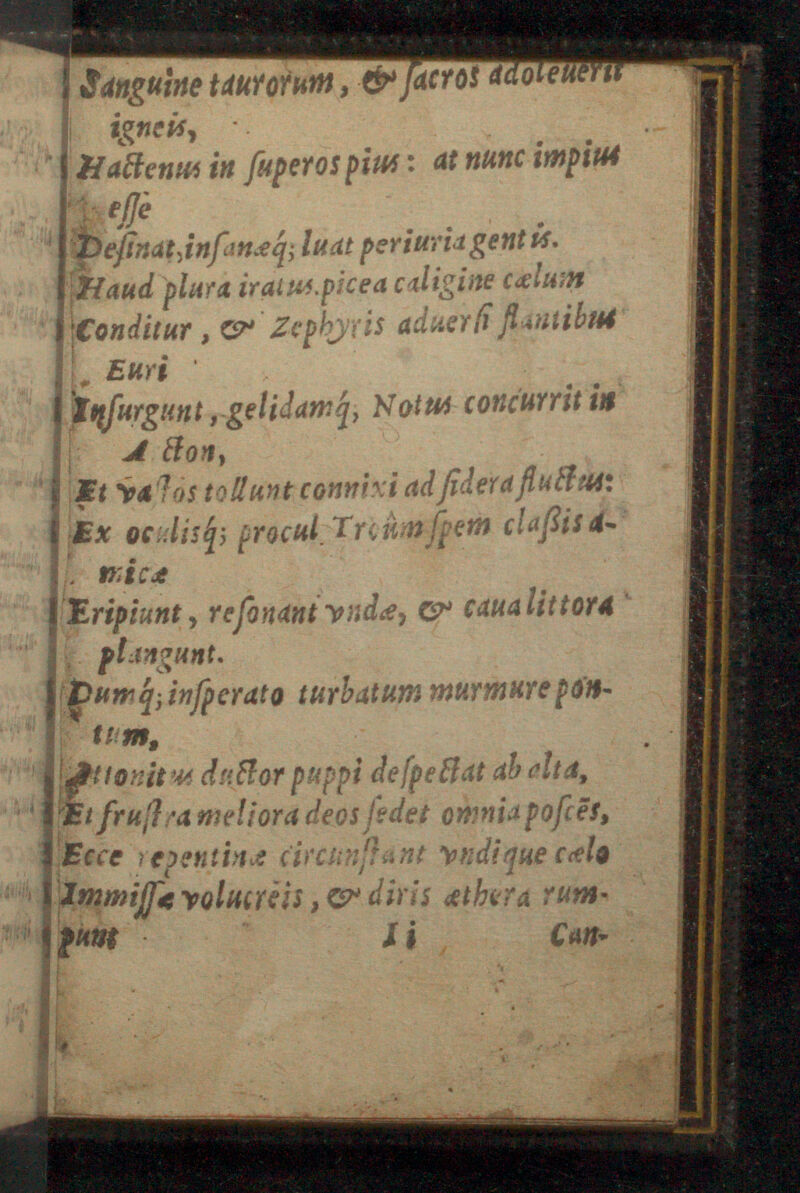 Sanguine taurorum, & sacros adoleuerit
igneis,
Hactenus in superos pius: at nunc impius
esse
Desinat, insanæq; luat periuria gentis.
Haud plura iratus. picea caligine cælum
Conditur, & Zephyris aduersi flantibus
Euri
Insurgunt, gelidamq́; Notus concurrit in
Acton,
Et vastos tollunt connixi ad sidera fluctus:
Ex oculisq́; procul Troûm spem classis a-
micæ
Eripiunt, resonant vndæ, & caua littora
plangunt.
Dumq́; insperato turbatum murmure pon-
tum,
Attonitus ductor puppi despectat ab alta,
Et frustra meliora deos sedet omnia poscēs,
Ecce repentinæ circunstant vndique cælo
Immissæ volucreis, & diris æthera rum-
punt
Ii Can-